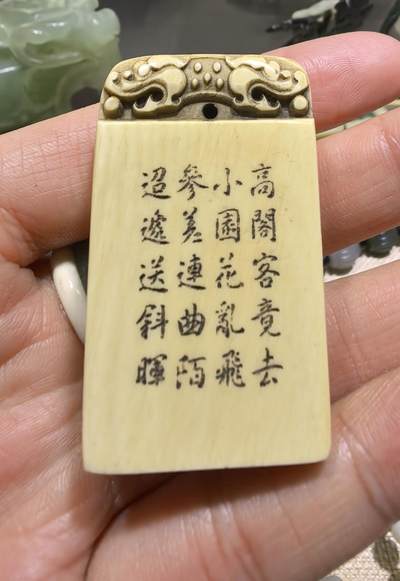 高閣客竟去
小園花亂飛
參差連曲陌
迢遞送斜暉